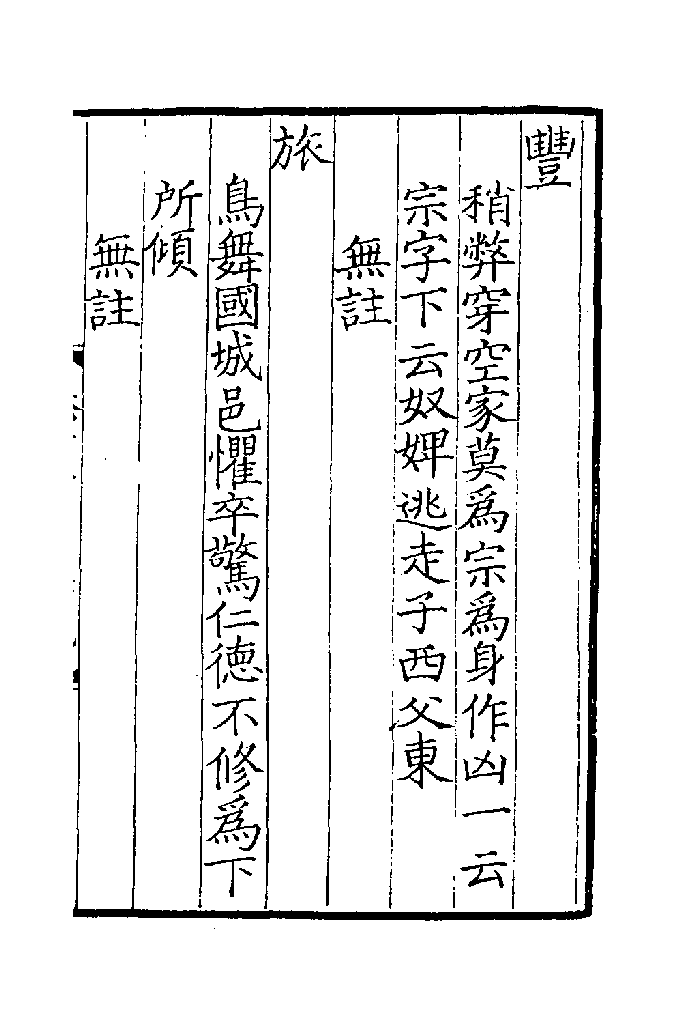 豐
稍弊穿空家莫為宗為身作凶一云
宗字下云奴婢逃走子西父東
無註
旅
鳥舞國城邑懼卒驚仁德不修為下
所傾
無註